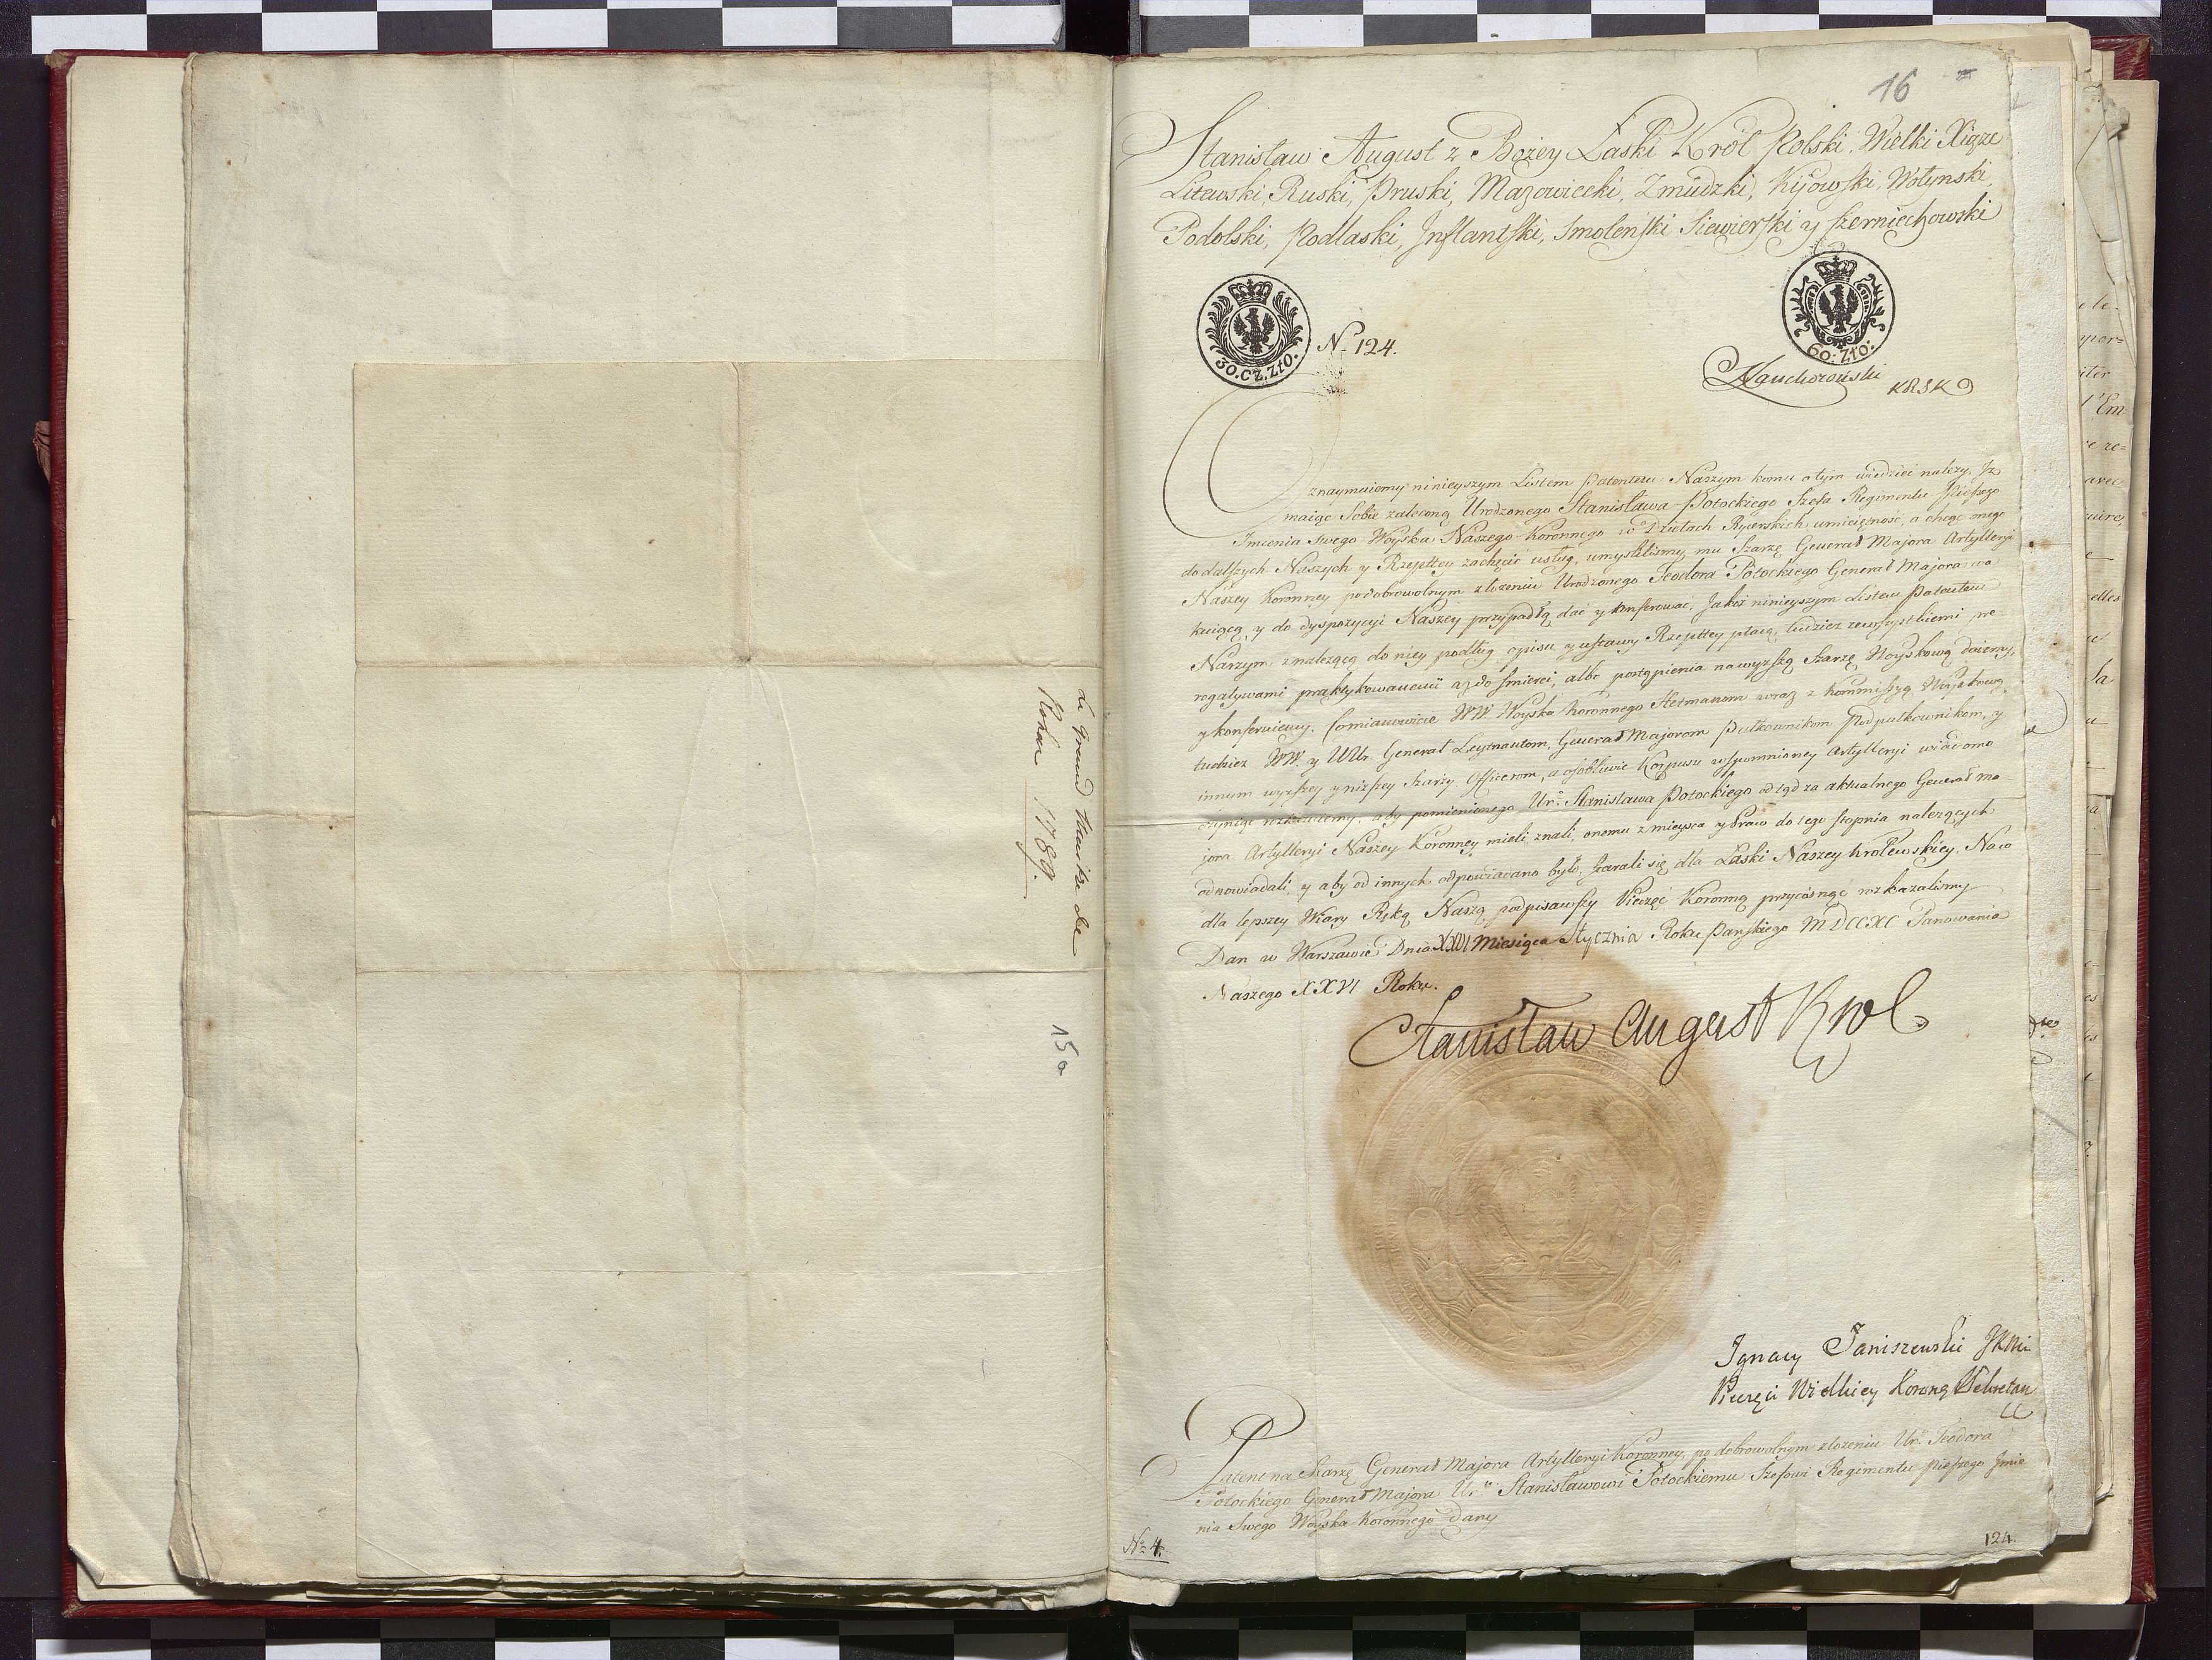 Le Grand Maitre de
Rohan 1789.
15a
16
Stanisław August z Bożey Łaski Król Polski, Wielki Xiąże
Litewski, Ruski, Pruski, Mazowiecki, Zmudzki, Kijowski, Wołynski,
Podolski, Podlaski, Inflantski, Smolenski Siewierski y Czerniechowski
30.CZ.ZŁO.
N 124.
60: ZŁO:
Oznaymuiemy ninieyszym Listem Patentem Naszym komu o tym wiedzieć należy, Iż
maiąc Sobie zaleconą Urodzonego Stanisława Potockiego Szefa Regimentu Pieszego
Imienia Swego Woyska Naszego Koronnego w Dziełach Rycerskich umieiętność, a chcąc onego
do dalszych Naszych y Rzepltey zachęcić usług, umyśliliśmy mu Szarżę Generał Majora Artylleryi
Naszey Koronney po dobrowolnym złożeniu Urodzonego Teodora Potockiego Generał Majora wa
kuiącą y do dyspozycyi Naszey przypadłą dać y konferować, Jakoż ninieyszym Listem Patentem
Naszym z należącą do niey podług opisu y ustawy Rzepltey płacą, tudzież ze wszystkiemi pre
rogatywami praktykowanemi aż do śmierci, albo postąpienia na wyższą Szarżę Woyskową daiemy,
y konferuiemy. Co mianowicie WW Woyska Koronnego Hetmanom wraz z Kommissyą Woyskową,
tudzież WW. y UUr. Generał Leytnantom, Generał Majorom Pułkownikom Podpułkownikom, y
innym wyższey y niższey Szarży Officerom, a osobliwie Korpusu wspomnioney Artylleryi wiadomo
czyniąc rozkazuiemy, aby pomienionego Ur. Stanisława Potockiego odtąd za aktualnego Generał ma
jora Artylleryi Naszey Koronney mieli, znali, onemu z mieysca y Praw do tego stopnia należących
odpowiadali, y aby od innych odpowiadano było, starali się dla Łaski Naszey Krolewskiey. Na co
dla lepszey Wiary Ręką Naszą podpisawszy Pieczęć Koronną przycisnąć rozkazaliśmy
Dan w Warszawie Dnia XXVI Miesiąca Stycznia Roku Pańskiego MDCCXC Panowania
Naszego XXVI Roku.
Stanisław August Krol
Ignacy Janiszewski JKMci
Pieczęci Wielkiey Koronney Sekretarz
Patent na Szarżę Generał Majora Artylleryi Koronney, po dobrowolnym złożeniu Ur. Teodora
Potockiego Generał Majora Ur. Stanisławowi Potockiemu Szefowi Regimentu Pieszego Imie
nia Swego Woyska Koronnego dany
No 4.
124.